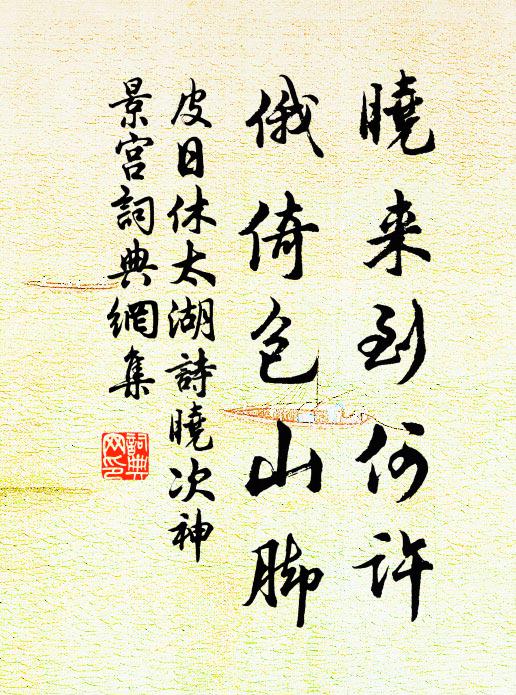 曉来到何許
俄倚包山脚
皮日休太湖詩曉次神
景宫詞典網集
詞典
网印